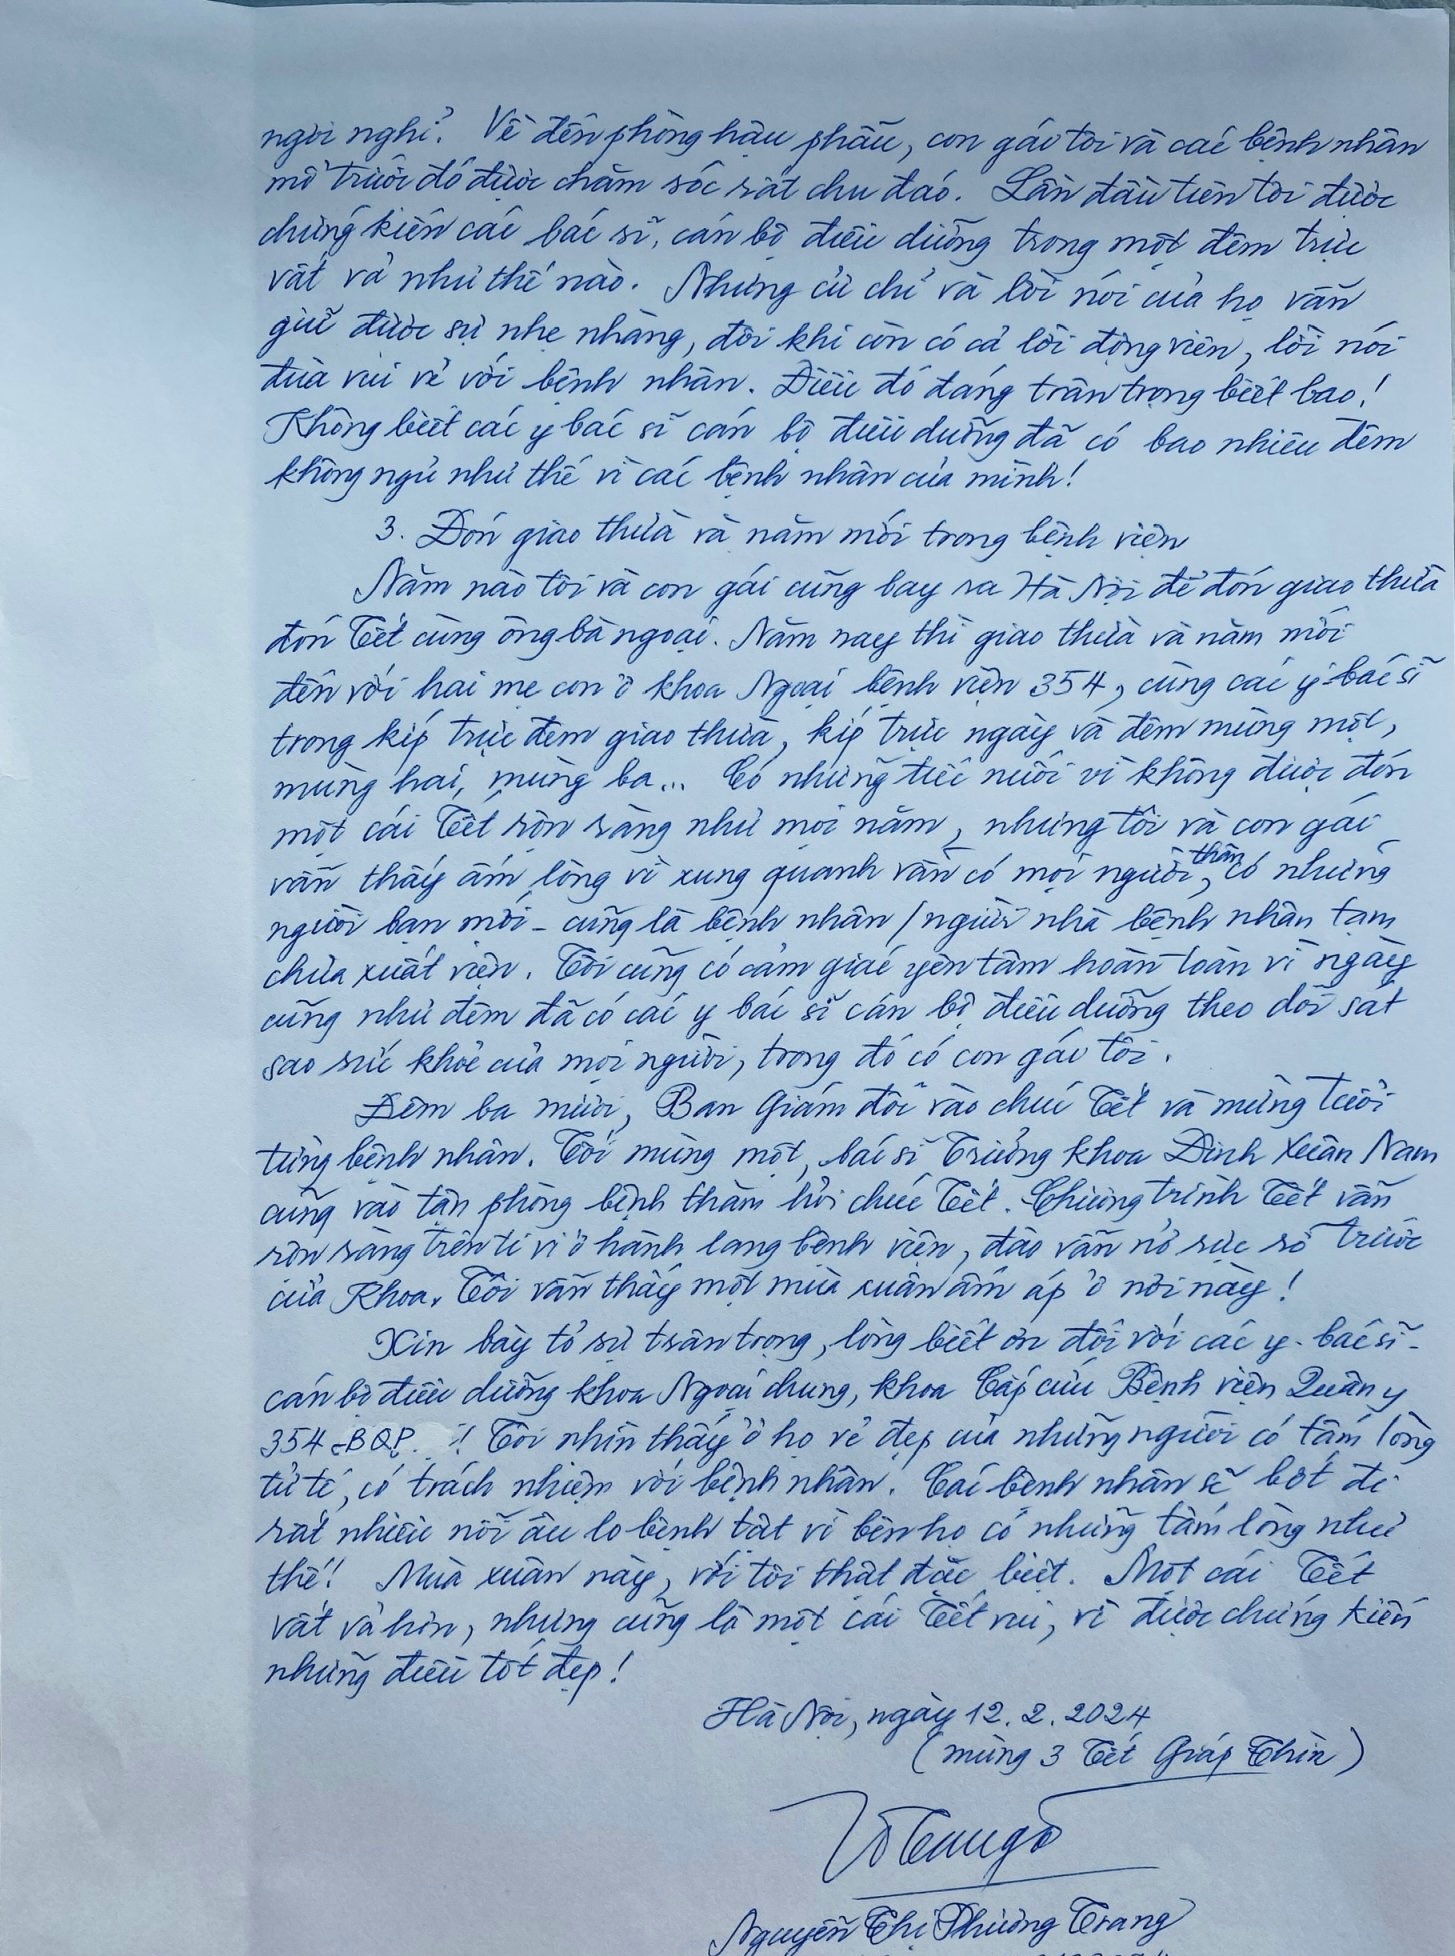 ngơi nghỉ. Về đến phòng hậu phẫu, con gái tôi và các bệnh nhân
mổ trước đó được chăm sóc rất chu đáo. Lần đầu tiên tôi được
chứng kiến các bác sĩ, cán bộ điều dưỡng trong một đêm trực
vất vả như thế nào. Nhưng cử chỉ và lời nói của họ vẫn
giữ được sự nhẹ nhàng, đôi khi còn có cả lời động viên, lời nói
đùa vui vẻ với bệnh nhân. Điều đó đáng trân trọng biết bao!
Không biết các y bác sĩ cán bộ điều dưỡng đã có bao nhiêu đêm
không ngủ như thế vì các bệnh nhân của mình!
3. Đón giao thừa và năm mới trong bệnh viện
Năm nào tôi và con gái cũng bay ra Hà Nội để đón giao thừa
đón Tết cùng ông bà ngoại. Năm nay thì giao thừa và năm mới
đến với hai mẹ con ở khoa Ngoại bệnh viện 354, cùng các y-bác sĩ
trong kíp trực đêm giao thừa, kíp trực ngày và đêm mùng một,
mùng hai, mùng ba... Có những tiếc nuối vì không được đón
một cái Tết rộn ràng như mọi năm, nhưng tôi và con gái
vẫn thấy ấm lòng vì xung quanh vẫn có mọi người thân, có những
người bạn mới - cũng là bệnh nhân / người nhà bệnh nhân tạm
chưa xuất viện. Tôi cũng có cảm giác yên tâm hoàn toàn vì ngày
cũng như đêm đã có các y bác sĩ cán bộ điều dưỡng theo dõi sát
sao sức khỏe của mọi người, trong đó có con gái tôi.
Đêm ba mươi, Ban Giám đốc vào chúc Tết và mừng tuổi
từng bệnh nhân. Tối mùng một, bác sĩ Trưởng khoa Đinh Xuân Nam
cũng vào tận phòng bệnh thăm hỏi chúc Tết. Chương trình Tết vẫn
rộn ràng trên ti vi ở hành lang bệnh viện, đào vẫn nở rực rỡ trước
cửa Khoa. Tôi vẫn thấy một mùa xuân ấm áp ở nơi này!
Xin bày tỏ sự trân trọng, lòng biết ơn đối với các y - bác sĩ -
cán bộ điều dưỡng khoa Ngoại chung, khoa Cấp cứu Bệnh viện Quân y
354 - BQP. ! Tôi nhìn thấy ở họ vẻ đẹp của những người có tấm lòng
tử tế, có trách nhiệm với bệnh nhân. Các bệnh nhân sẽ bớt đi
rất nhiều nỗi âu lo bệnh tật vì bên họ có những tấm lòng như
thế! Mùa xuân này, với tôi thật đặc biệt. Một cái Tết
vất vả hơn, nhưng cũng là một cái Tết vui, vì được chứng kiến
những điều tốt đẹp!
Hà Nội, ngày 12.2.2024
(mùng 3 Tết Giáp Thìn)
Nguyễn Thị Phương Trang